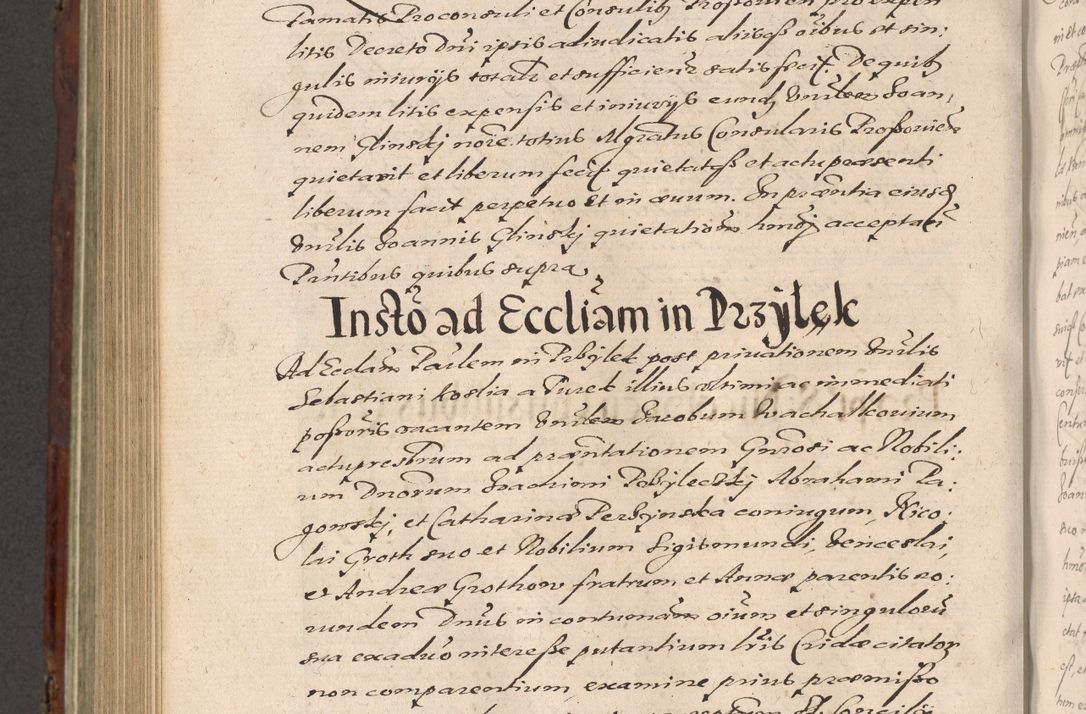 Famatis Proconsuli et Consulib
litis Decreto Dni ipsis adiudicatis aliisqß oibus et sin:
gulis iniurijs total' et sufficienr satisfecit. De quib
quidem litis expensis et iniurijs eund Honlem Joan,
nem Glinskj noie totius Mgratus Consularis Proßovien
quietavit et liberum fecit quietatqß et actu praesenti
liberum facit perpetuo et in aevum. In prœntia eiusd
Honlis Joannis Glinskj quietationem hmoj acceptan
Pantibus quibus supra
Insto ad Eccliam in Przyłęk
Ad Ecclam Paulem in Przylek post privationem Honlis
Sebastiani Koslia a Turek illius ultimi ac immediati
poßoris vacantem Honlem Jacobum Wachalkovium
actu presbrum ad præntationem Gnrosi ac Nobili:
um Dnorum Joachimi Przyleckj Abrahami Pa:
gowskj, et Catharinæ Perzynska coniugum, Nico:
lai Groth suo et Nobilium Sigismundi, Venceslai,
et Andreæ Grothow fratrum et Annæ parentis eo:
rundem Dnus in contumam oium et singulorum
sua ex aduo intereße putantium lris Cridæ citator
non comparentium, examine prius præmißo